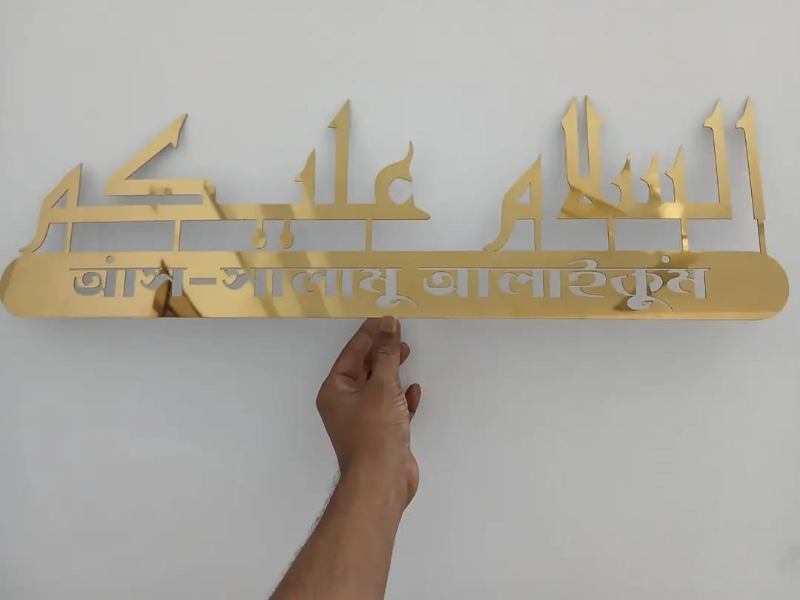 السلام عليكم
আস-সালামু আলাইকুম